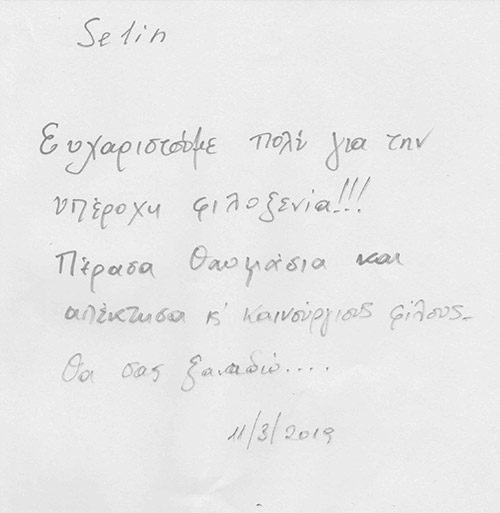 Selin
Ευχαριστούμε πολύ για την
υπέροχη φιλοξενία!!!
Πέρασα θαυμάσια και
απέκτησα κ' καινούργιους φίλους_
Θα σας ξαναδώ....
11/3/2019